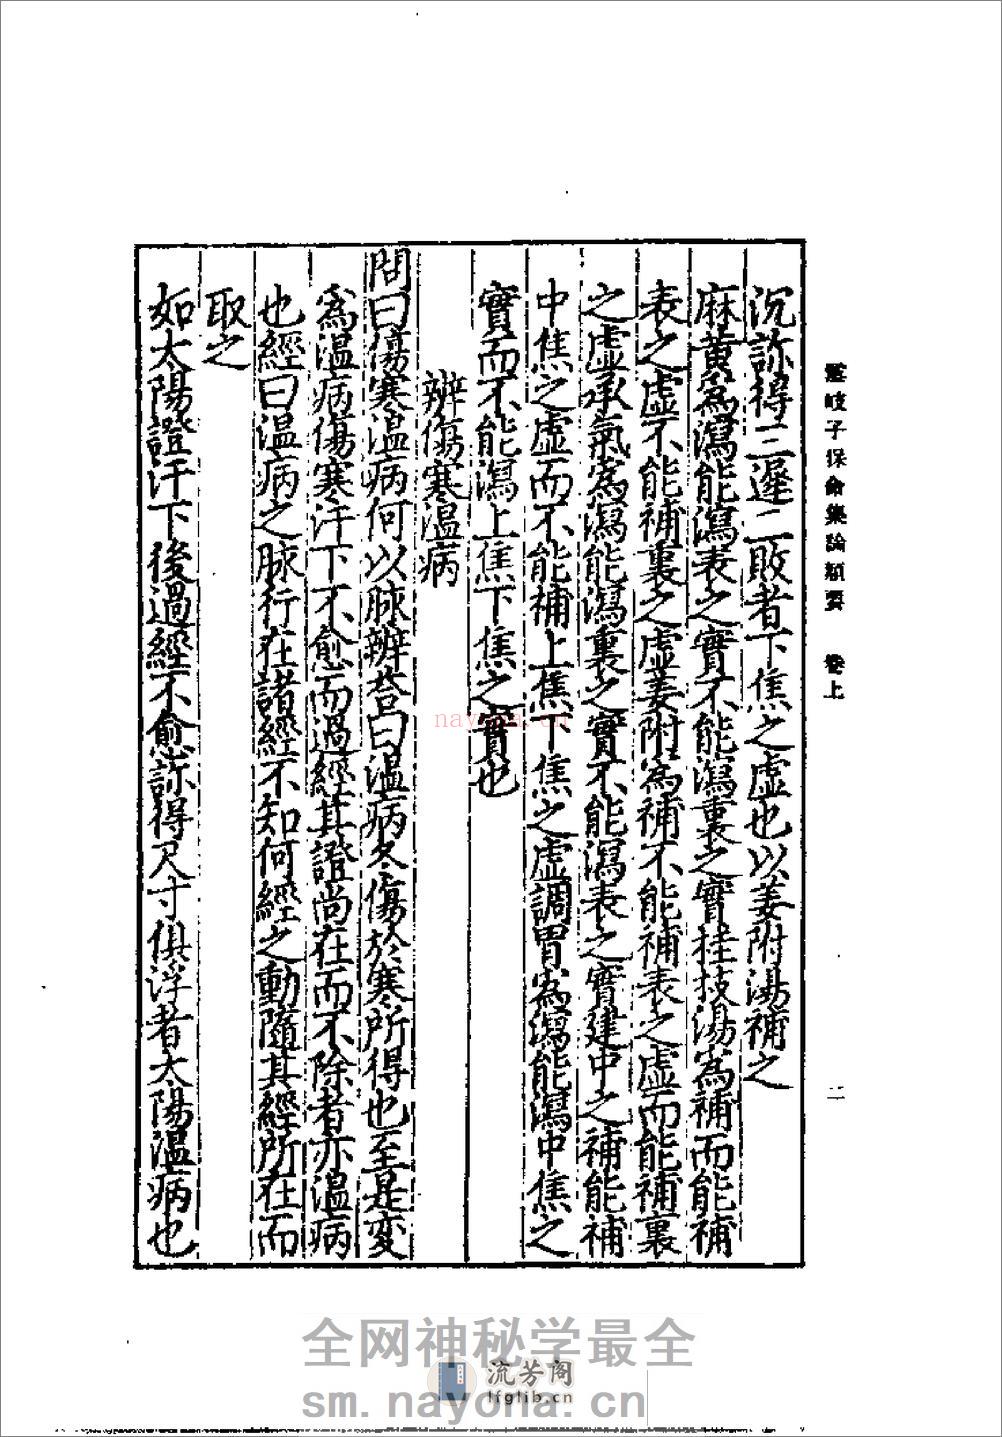 雲岐子保命集論類要 卷上 二
沉診得三遲二敗者下焦之虛也以姜附湯補之
麻黃為瀉能瀉表之實不能瀉裏之實桂枝湯為補而能補
表之虛不能補裏之虛姜附為補不能補表之虛而能補裏
之虛承氣為瀉能瀉裏之實不能瀉表之實建中之補能補
中焦之虛而不能補上焦下焦之虛調胃為瀉能瀉中焦之
實而不能瀉上焦下焦之實也
辨傷寒温病
問曰傷寒温病何以脉辨荅曰温病冬傷於寒所得也至是变
為温病傷寒汗下不愈而過經其證尚在而不除者亦温病
也經曰温病之脉行在諸經不知何經之動隨其經所在而
取之
如太陽證汗下後過經不愈診得尺寸俱浮者太陽温病也
nayona.cn
全网神秘学最全
流芳阁
lfglib.cn
sm.nayona.cn